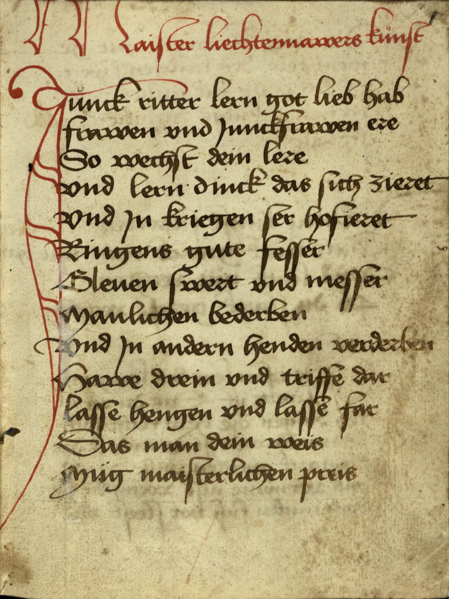 Maister liechtennawers kunst
Junck ritter lern got lieb hab
frawen vnd Junckfrawen ere
So wechst dein lere
vnd lern dinck das sich zieret
vnd In kriegen ser hofieret
Ringens gute fesser
Gleuen swert vnd messer
Manlichen bederben
Vnd In andern henden verderben
Hawe drein vnd triffe dar
lasse hengen vnd lasse far
Das man dein weis
Müg maisterlichen preis